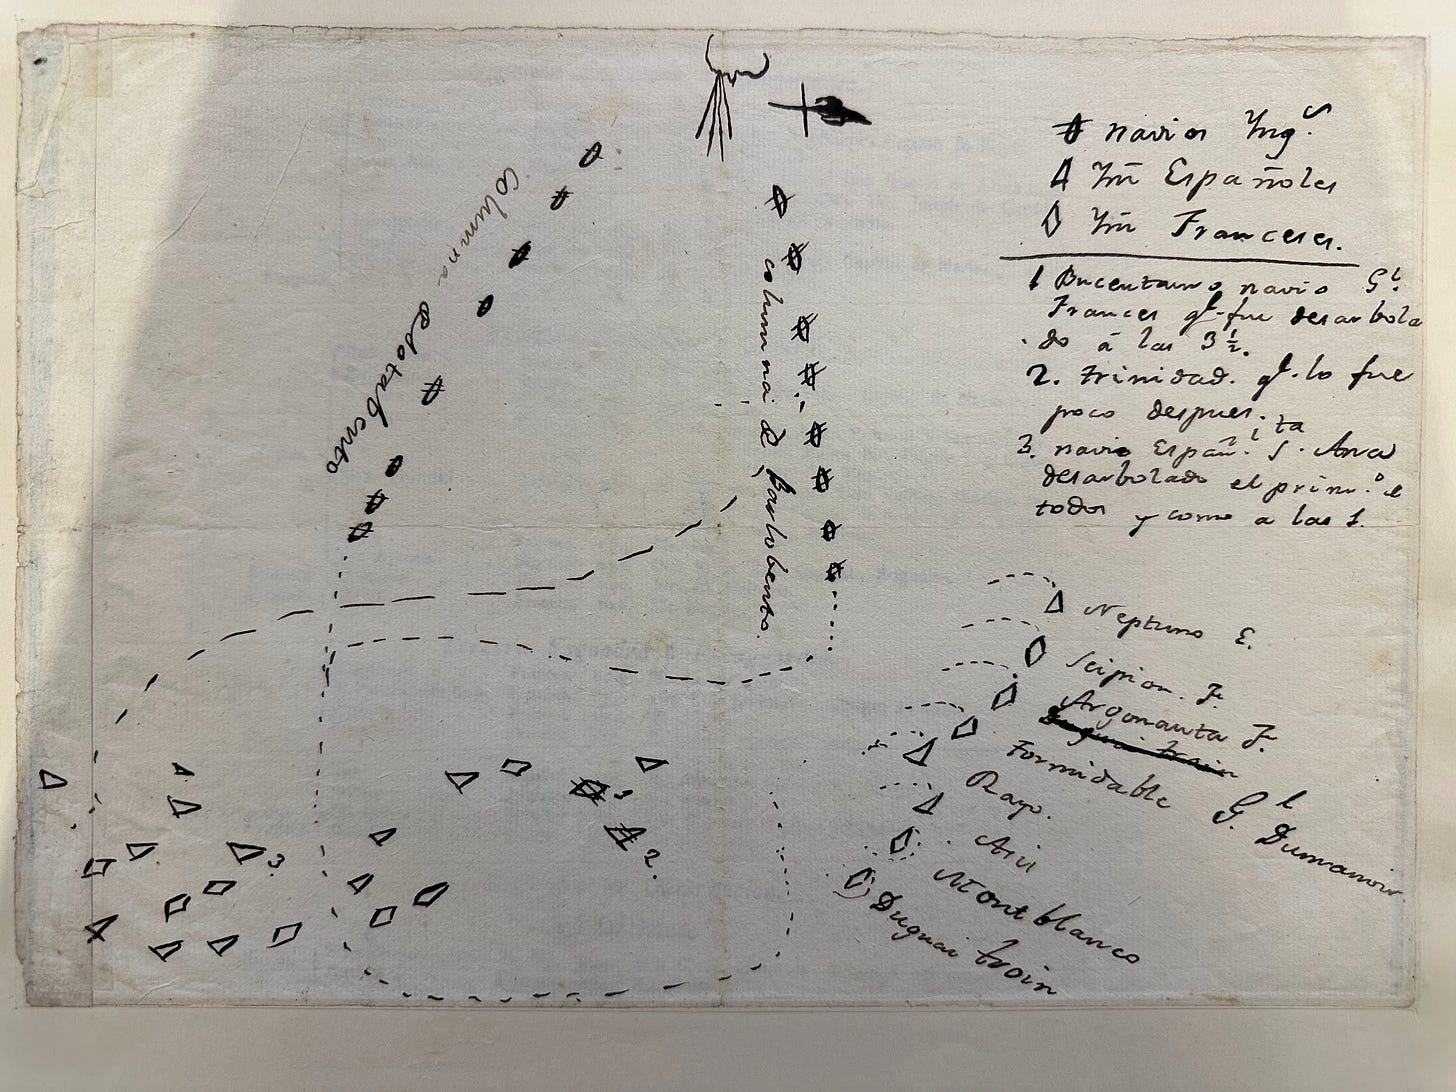 navios Yngs.
Ym̃ Españoles
Ym̃ Franceses.
1 Bucentauro navio Gl.
Frances ql. fue desarbola
do á las 3½.
2. trinidad. ql. lo fue
poco despues.
3. navio Españl. Sta. Ana
desarbolado el primo. e
todos y como a las 1.
columna
columna
Barlobento.
Neptuno E.
Scipion. F.
Argonauta F.
Formidable Gl. Dumanoir
Rayo.
Montblanco
Duguai troin
3
2.
3